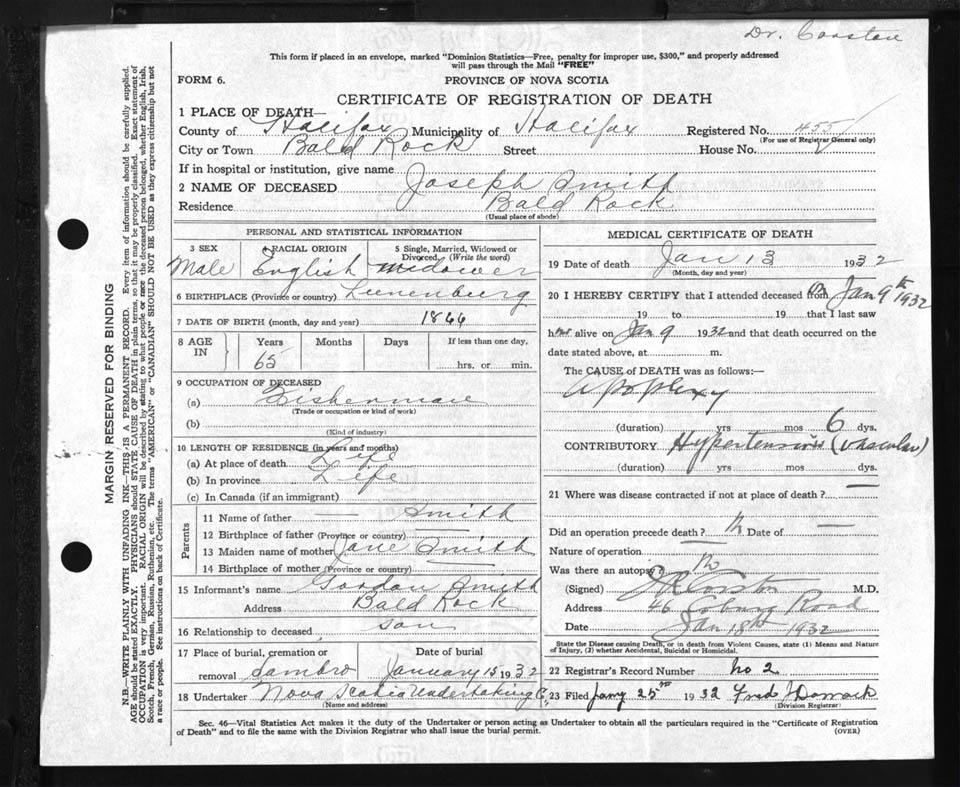 Dr. Corston
This form if placed in an envelope, marked "Dominion Statistics—Free, penalty for improper use, $300," and properly addressed
will pass through the Mail "FREE"
FORM 6.
PROVINCE OF NOVA SCOTIA
CERTIFICATE OF REGISTRATION OF DEATH
1 PLACE OF DEATH—
County of Halifax Municipality of Halifax Registered No. 455
(For use of Registrar General only)
City or Town Bald Rock Street House No.
If in hospital or institution, give name
2 NAME OF DECEASED Joseph Smith
Residence Bald Rock
(Usual place of abode)
PERSONAL AND STATISTICAL INFORMATION
3 SEX Male
4 RACIAL ORIGIN English
5 Single, Married, Widowed or Divorced. (Write the word) Widower
6 BIRTHPLACE (Province or country) Lunenburg
7 DATE OF BIRTH (month, day and year) 1866
8 AGE IN Years Months Days If less than one day,
65 hrs. or min.
9 OCCUPATION OF DECEASED
(a) Fisherman
(Trade or occupation or kind of work)
(b)
(Kind of industry)
10 LENGTH OF RESIDENCE (in years and months)
(a) At place of death Life
(b) In province Life
(c) In Canada (if an immigrant)
Parents
11 Name of father — Smith
12 Birthplace of father (Province or country) —
13 Maiden name of mother Jane Smith
14 Birthplace of mother (Province or country) —
15 Informant's name Gordon Smith
Address Bald Rock
16 Relationship to deceased son
17 Place of burial, cremation or removal Sambro
Date of burial January 15 1932
18 Undertaker Nova Scotia Undertaking Co
(Name and address)
MEDICAL CERTIFICATE OF DEATH
19 Date of death Jan 13 1932
(Month, day and year)
20 I HEREBY CERTIFY that I attended deceased from On Jan 9th 1932
19 to 19 that I last saw
him alive on Jan 9 1932 and that death occurred on the
date stated above, at m.
The CAUSE OF DEATH was as follows:—
Apoplexy
(duration) yrs mos 6 dys.
CONTRIBUTORY Hypertension (vascular)
(duration) yrs mos dys.
21 Where was disease contracted if not at place of death? —
Did an operation precede death? No Date of —
Nature of operation —
Was there an autopsy? No
(Signed) Corston M.D.
Address 46 Coburg Road
Date Jan 18th 1932
State the Disease causing Death, or in death from Violent Causes, state (1) Means and Nature
of Injury, (2) whether Accidental, Suicidal or Homicidal.
22 Registrar's Record Number No 2
23 Filed Jany 25th 1932 Fred J Darrach
(Division Registrar)
Sec. 46—Vital Statistics Act makes it the duty of the Undertaker or person acting as Undertaker to obtain all the particulars required in the "Certificate of Registration
of Death" and to file the same with the Division Registrar who shall issue the burial permit.
(OVER)
MARGIN RESERVED FOR BINDING
N.B.—WRITE PLAINLY WITH UNFADING INK—THIS IS A PERMANENT RECORD. Every item of information should be carefully supplied.
AGE should be stated EXACTLY. PHYSICIANS should STATE CAUSE OF DEATH in plain terms, so that it may be properly classified. Exact statement of
OCCUPATION is very important. RACIAL ORIGIN will be described by stating to what people or race the deceased person belonged, whether English, Irish,
Scotch, French, German, Russian, Ruthenian, etc. The terms "AMERICAN" or "CANADIAN" SHOULD NOT BE USED as they express citizenship but not
a race or people. See instructions on back of Certificate.